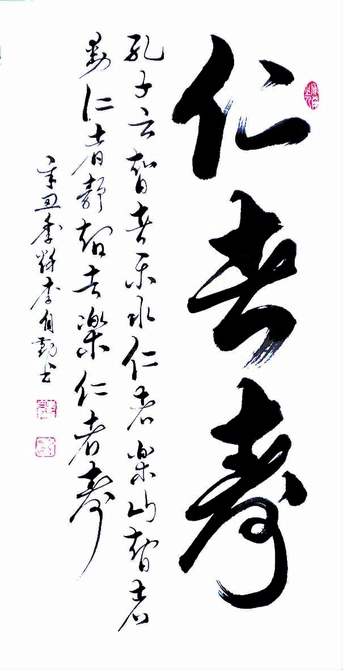 仁者寿
孔子云智者乐水仁者樂山智者
動仁者静智者樂仁者寿
辛丑季秋李自勤书